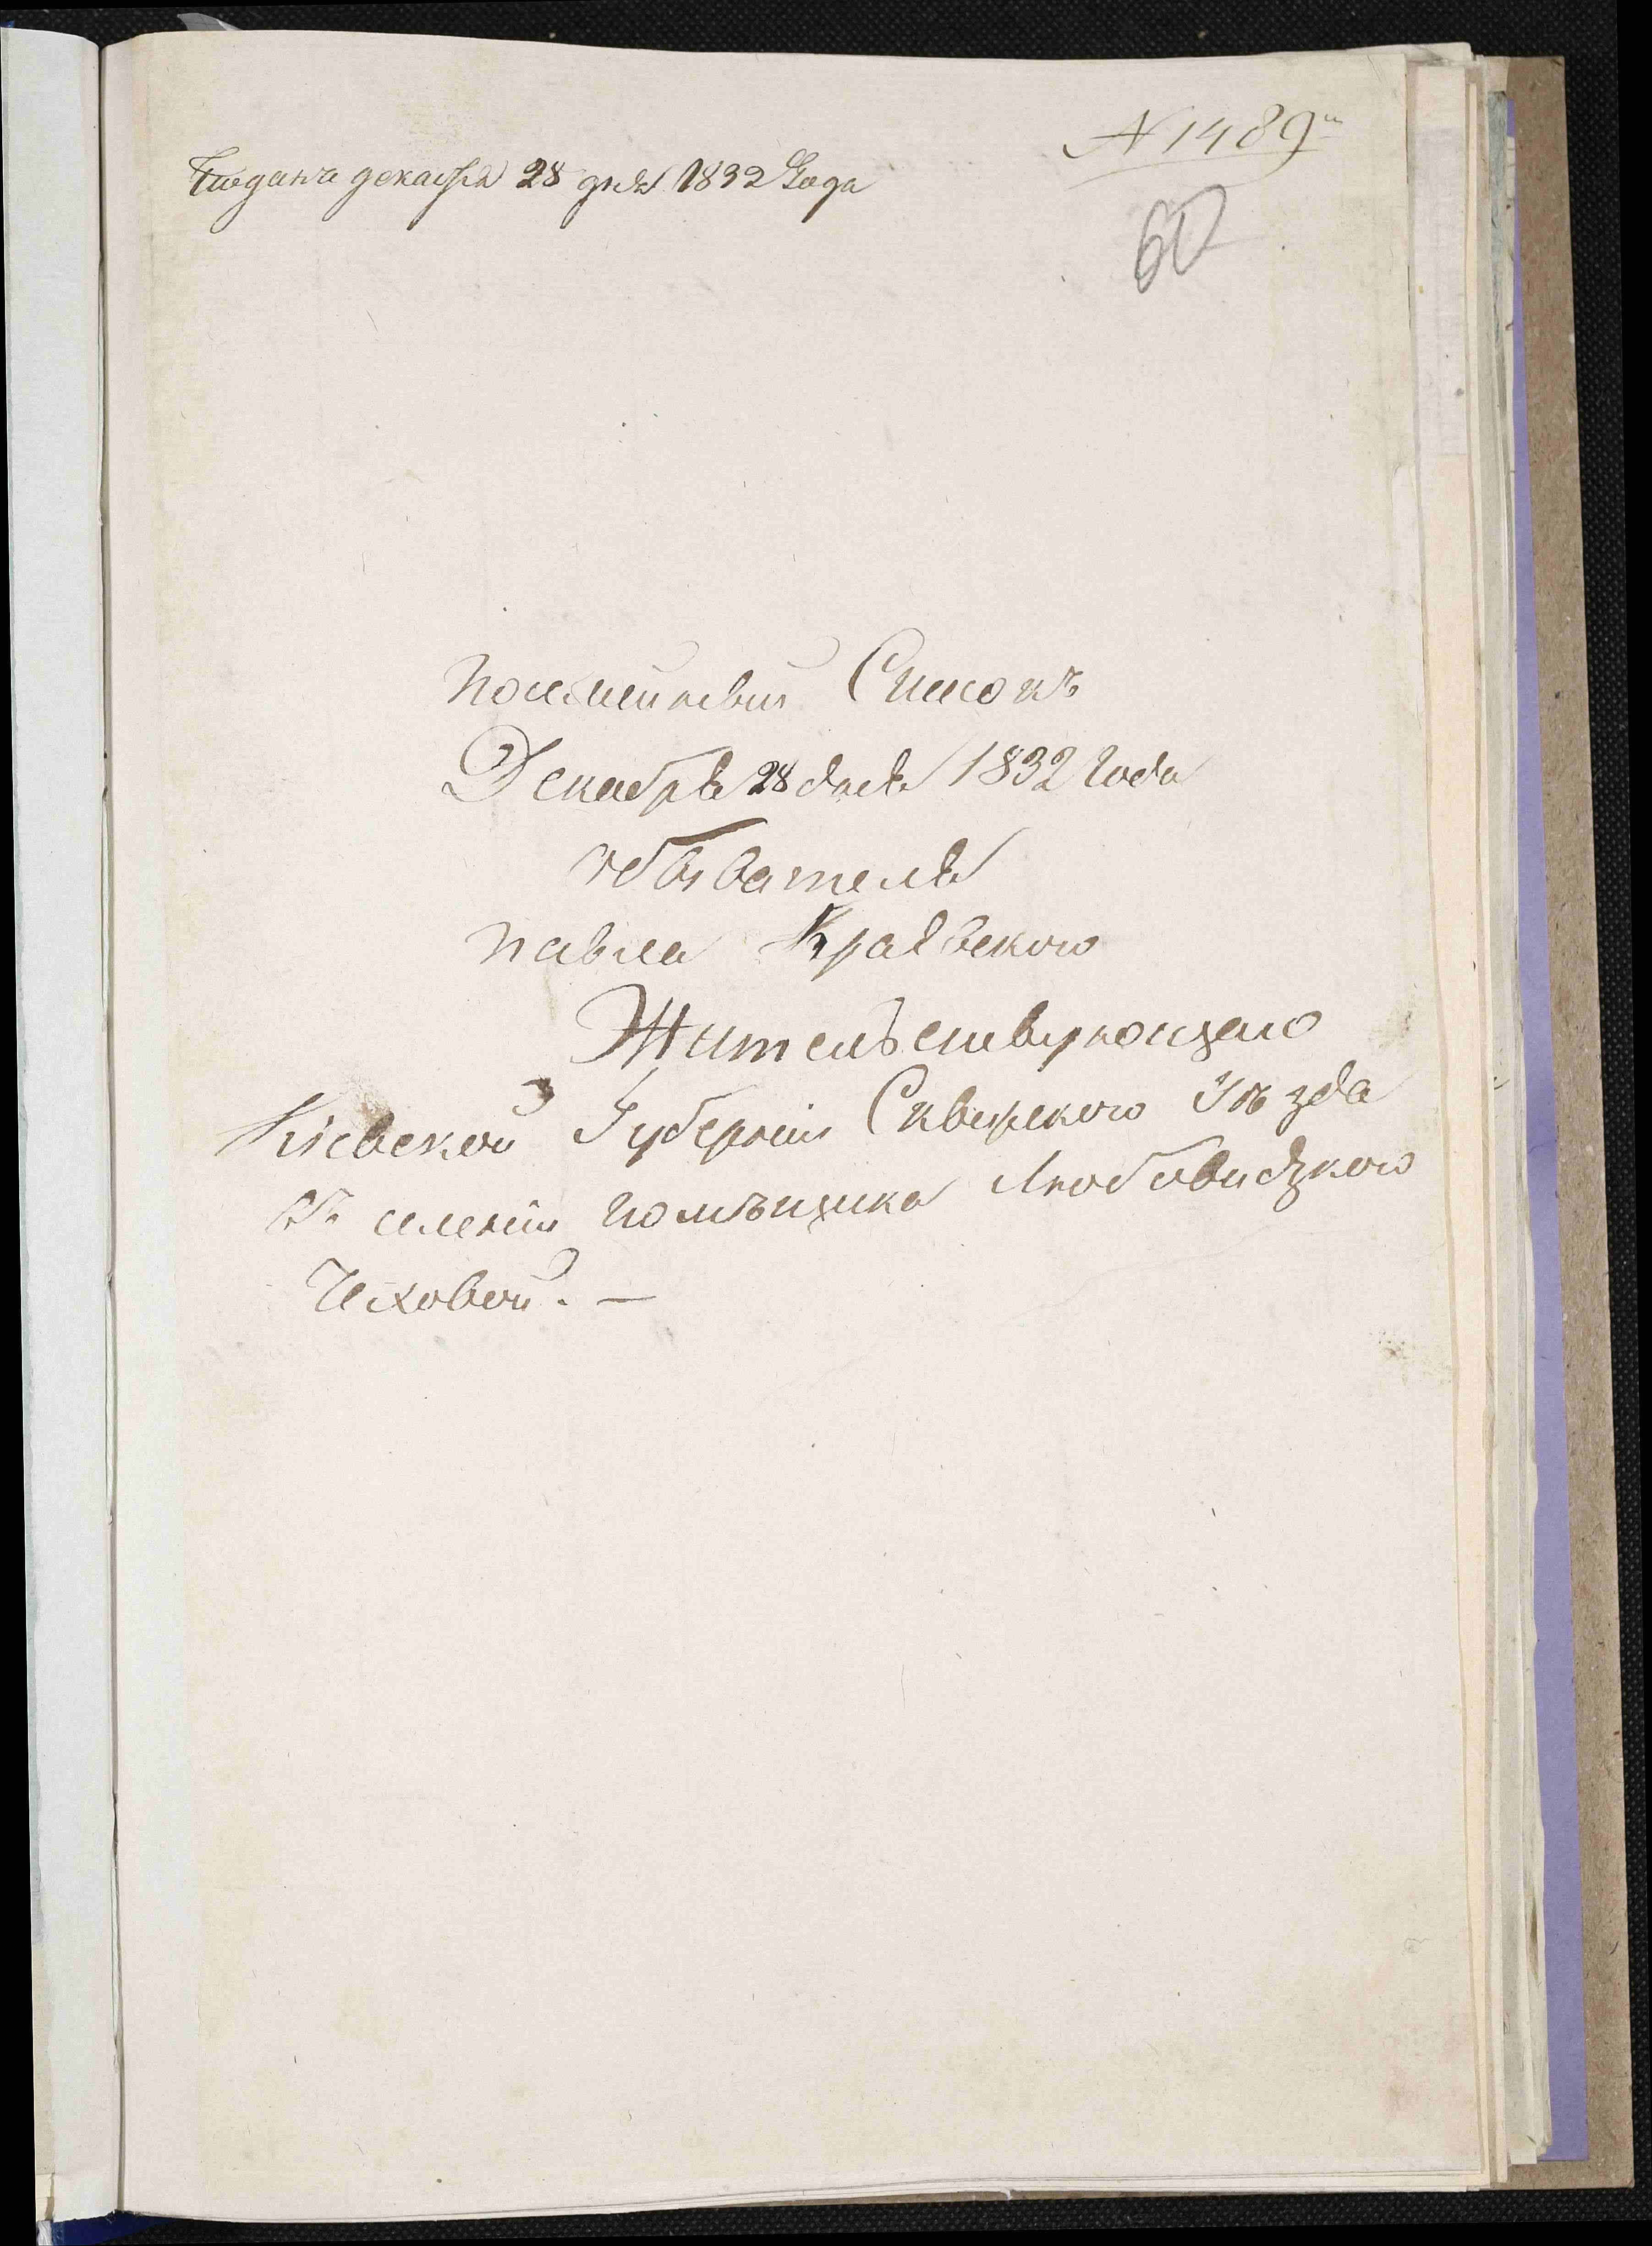 N 1489
Подана декабря 28 дня 1832 Года
60
Посемейный Список
Декабря 28 дня 1832 года
обывателя
павла Краевского
Жительствующаго
Кіевской Губерніи Сквирского Уѣзда
въ селеніи помѣщика Любовидзкого
Чеховой. —